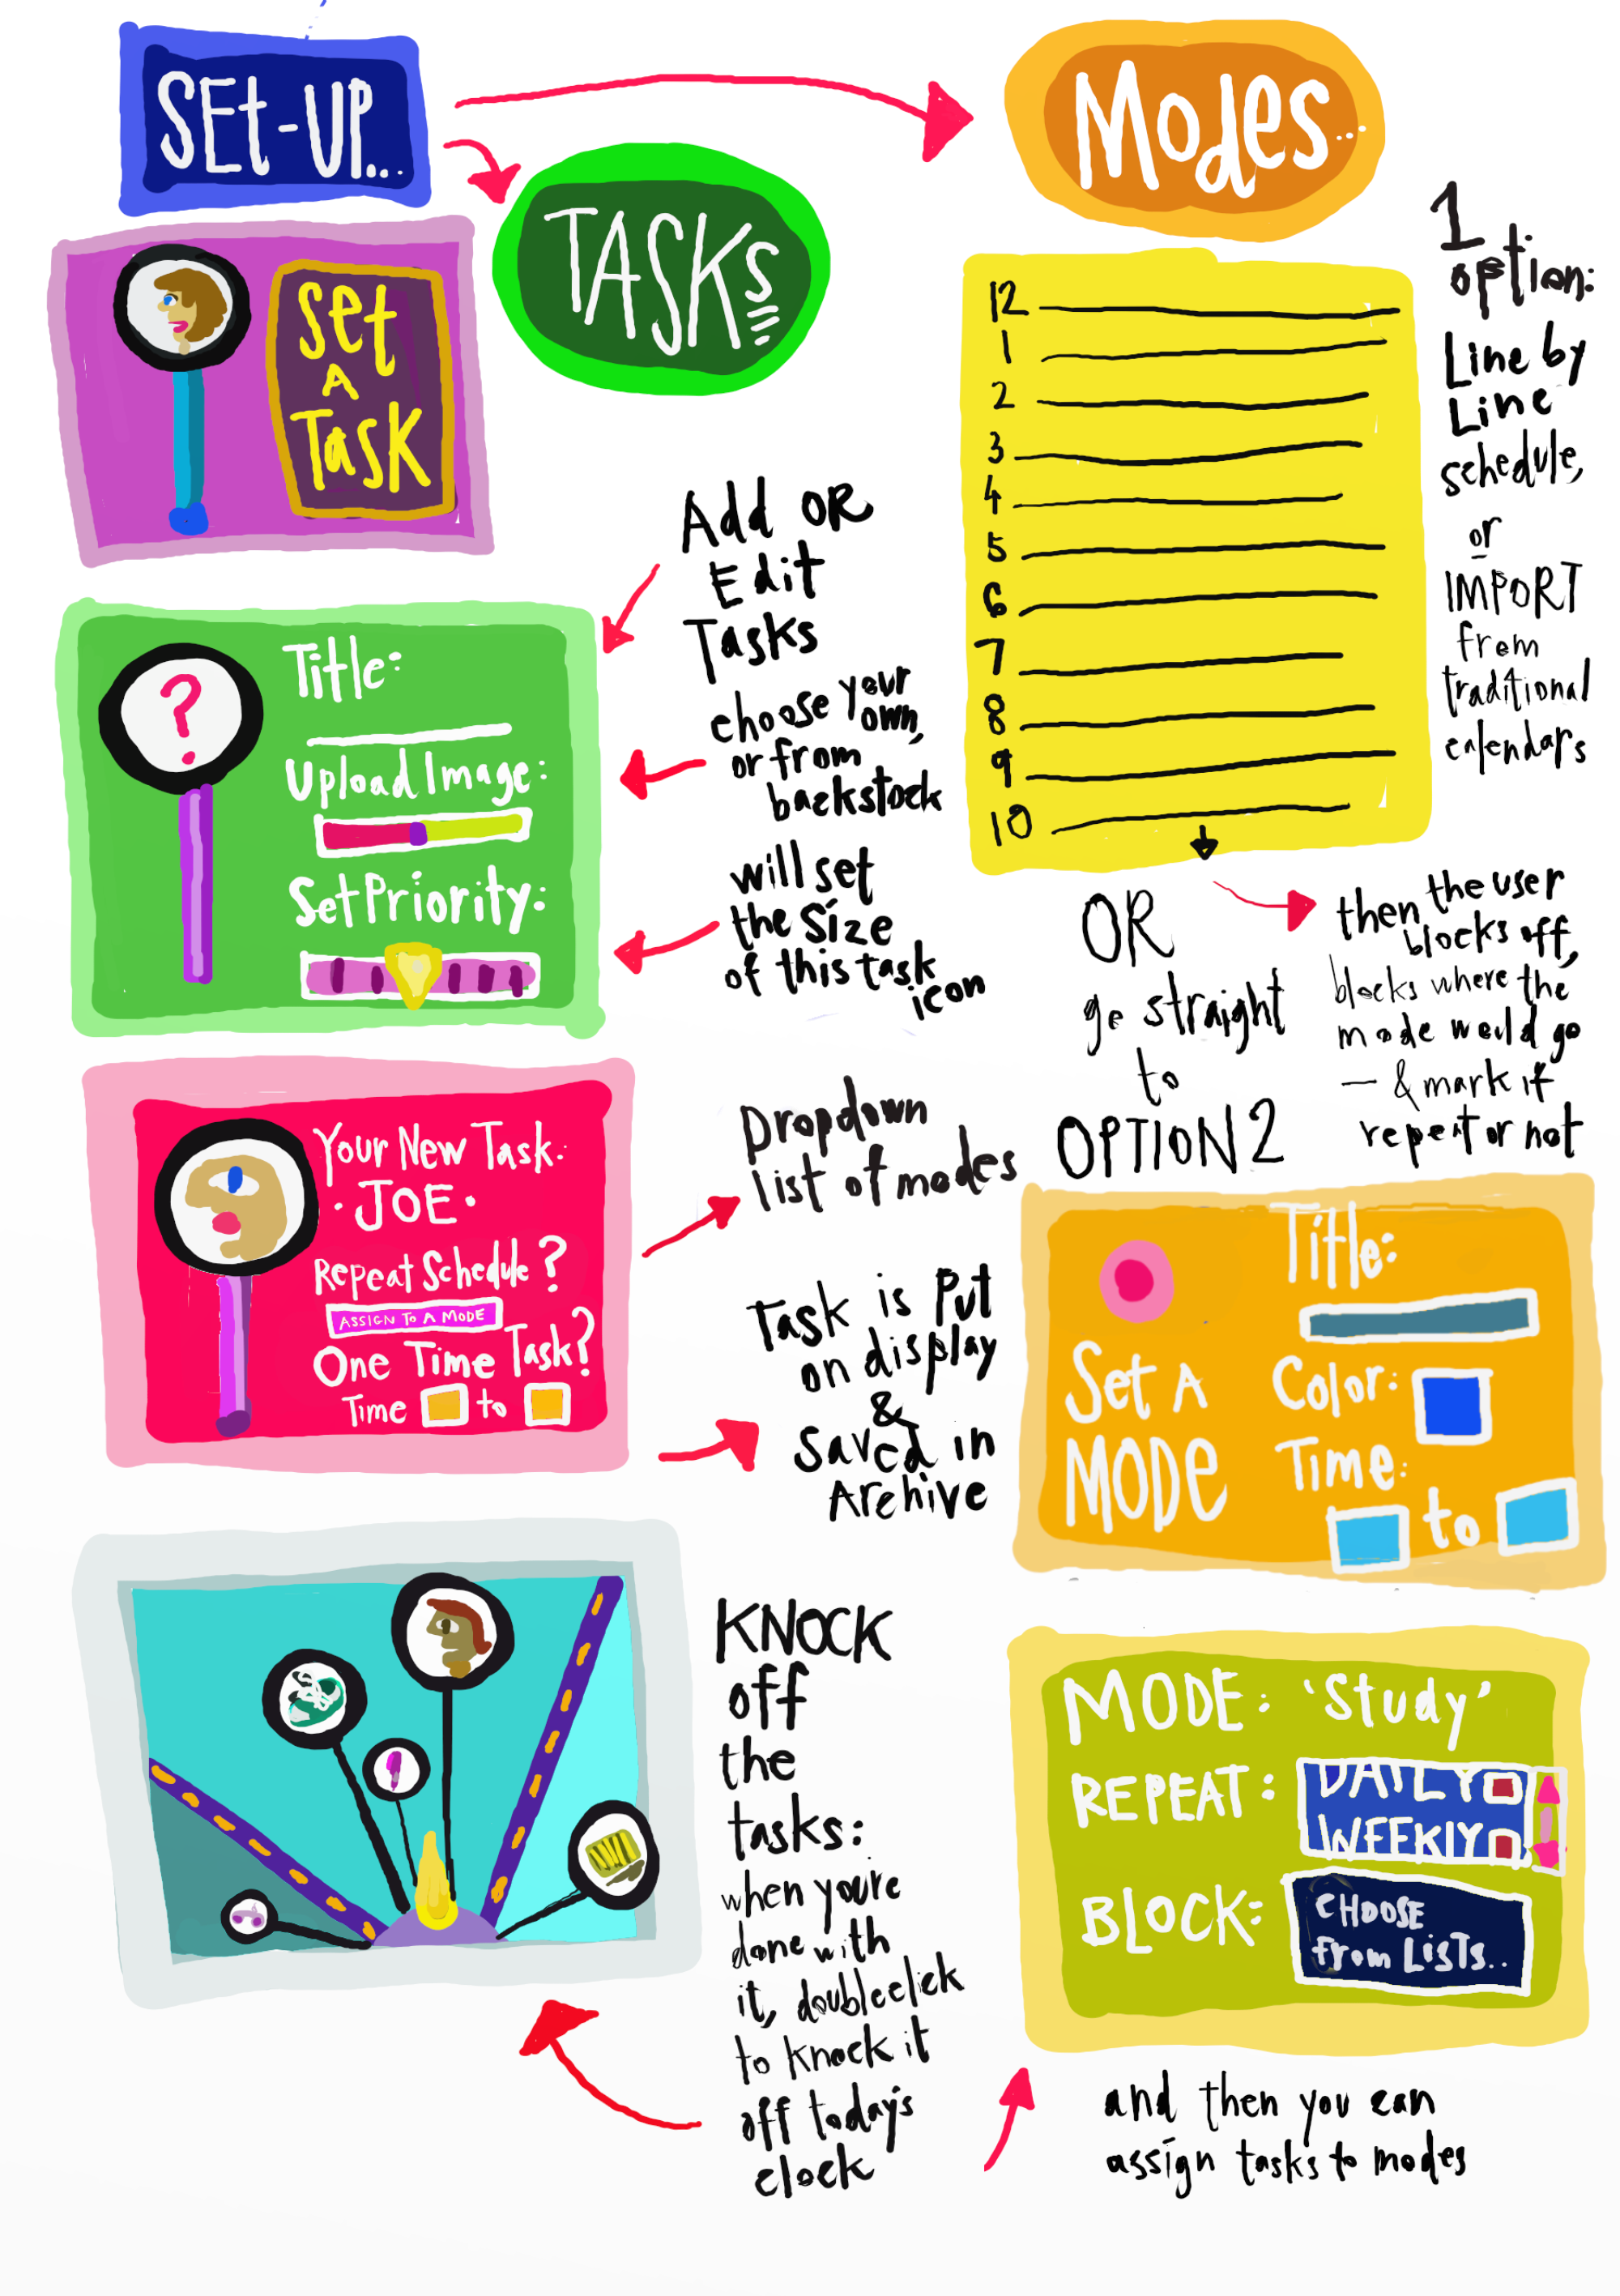 SEt-UP...
TASKs
Set
A
Task
Add OR
Edit
Tasks
Title:
choose your
own,
or from
backstock
Upload Image:
Set Priority:
will set
the Size
of this task
icon
Your New Task:
· JOE ·
Repeat Schedule?
ASSIGN To A MODE
One Time Task?
Time to
Dropdown
list of modes
Task is Put
on display
&
Saved in
Archive
KNOCK
off
the
tasks:
when youre
done with
it, doubleclick
to knock it
off today's
clock
Modes...
1
option:
Line by
Line
schedule,
or
IMPORT
from
traditional
calendars
12
1
2
3
4
5
6
7
8
9
10
OR
go straight
to
OPTION 2
then the user
blocks off,
blocks where the
mode would go
— & mark if
repeat or not
Set A
MODE
Title:
Color:
Time:
to
MODE: 'Study'
REPEAT: DAILY
WEEKLY
BLOCK: CHOOSE
from LisTs..
and then you can
assign tasks to modes